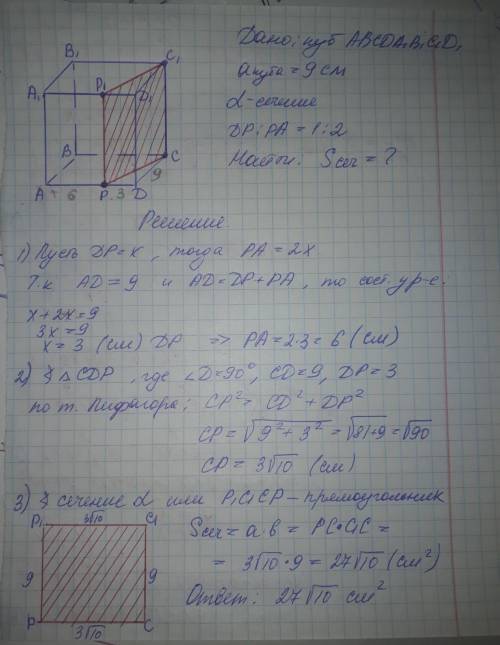 Дано: куб ABCDA₁B₁C₁D₁
a куба = 9 см
α - сечение
DP:PA = 1:2
Найти: Sсеч = ?
B₁
C₁
A₁
P₁
D₁
B
C
9
A
6
P
3
D
Решение
1) Пусть DP = x, тогда PA = 2x
Т.к AD = 9 и AD = DP + PA, то сост. ур-е:
x + 2x = 9
3x = 9
x = 3 (см) DP => PA = 2·3 = 6 (см)
2) △CDP, где ∠D = 90°, CD = 9, DP = 3
по т. Пифагора: CP² = CD² + DP²
CP = √9² + 3² = √81+9 = √90
CP = 3√10 (см)
3) сечение α или P₁C₁CP – прямоугольник
P₁
3√10
C₁
Sсеч = a·b = PC·C₁C =
9
9
= 3√10 · 9 = 27√10 (см²)
Ответ: 27√10 см²
P
3√10
C